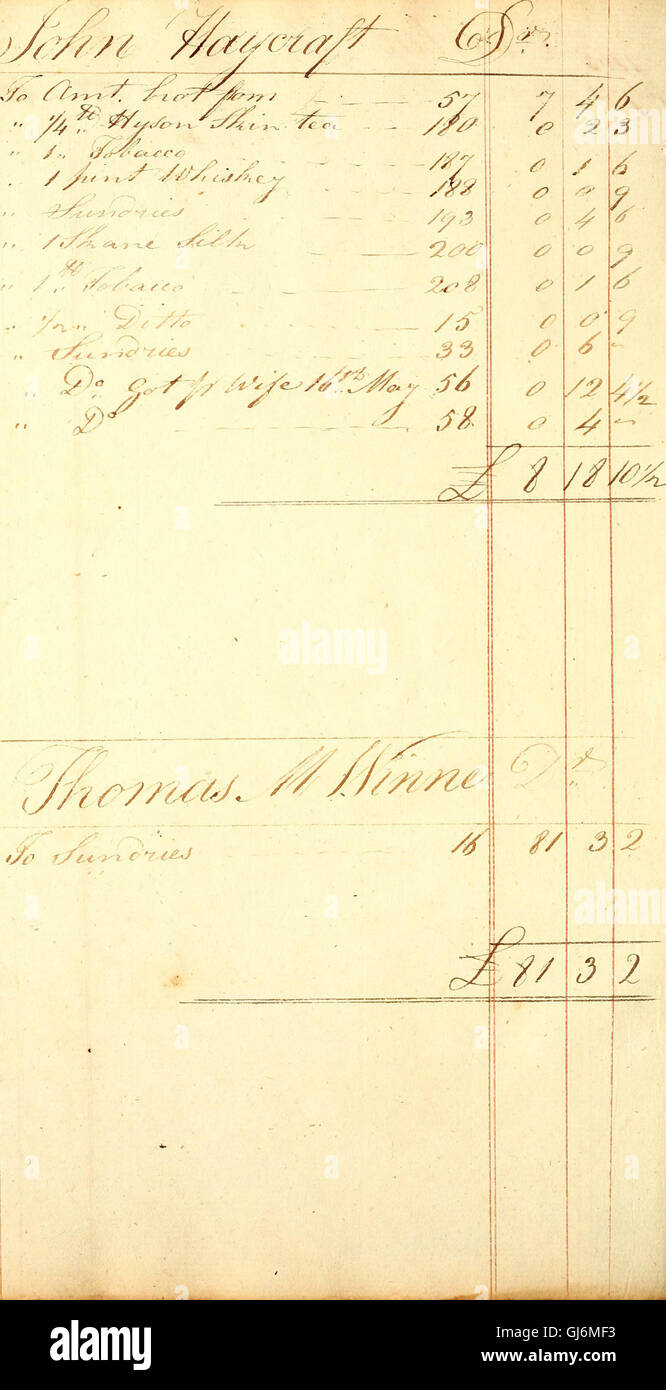 John Haycraft Dr.
To Amt. brot from 57 7 4 6
" 1/4 lb Hyson Skin tea 180 0 2 3
" 1 " Tobacco 187 0 1 6
" 1 pint Whiskey 188 0 0 9
" Sundries 193 0 4 6
" 1 Skane Silk 200 0 0 9
" 1 lb Tobacco 208 0 1 6
" 1/2 " Ditto 15 0 0 9
" Sundries 33 0 6 "
" Do. Got pr Wife 16th May 56 0 12 4 1/2
" Do 58 0 4 "
£ 8 18 10 1/2
alamy
Thomas M Winne Dr.
To Sundries 16 81 3 2
£ 81 3 2
alamy
Image ID: GJ6MF3
www.alamy.com